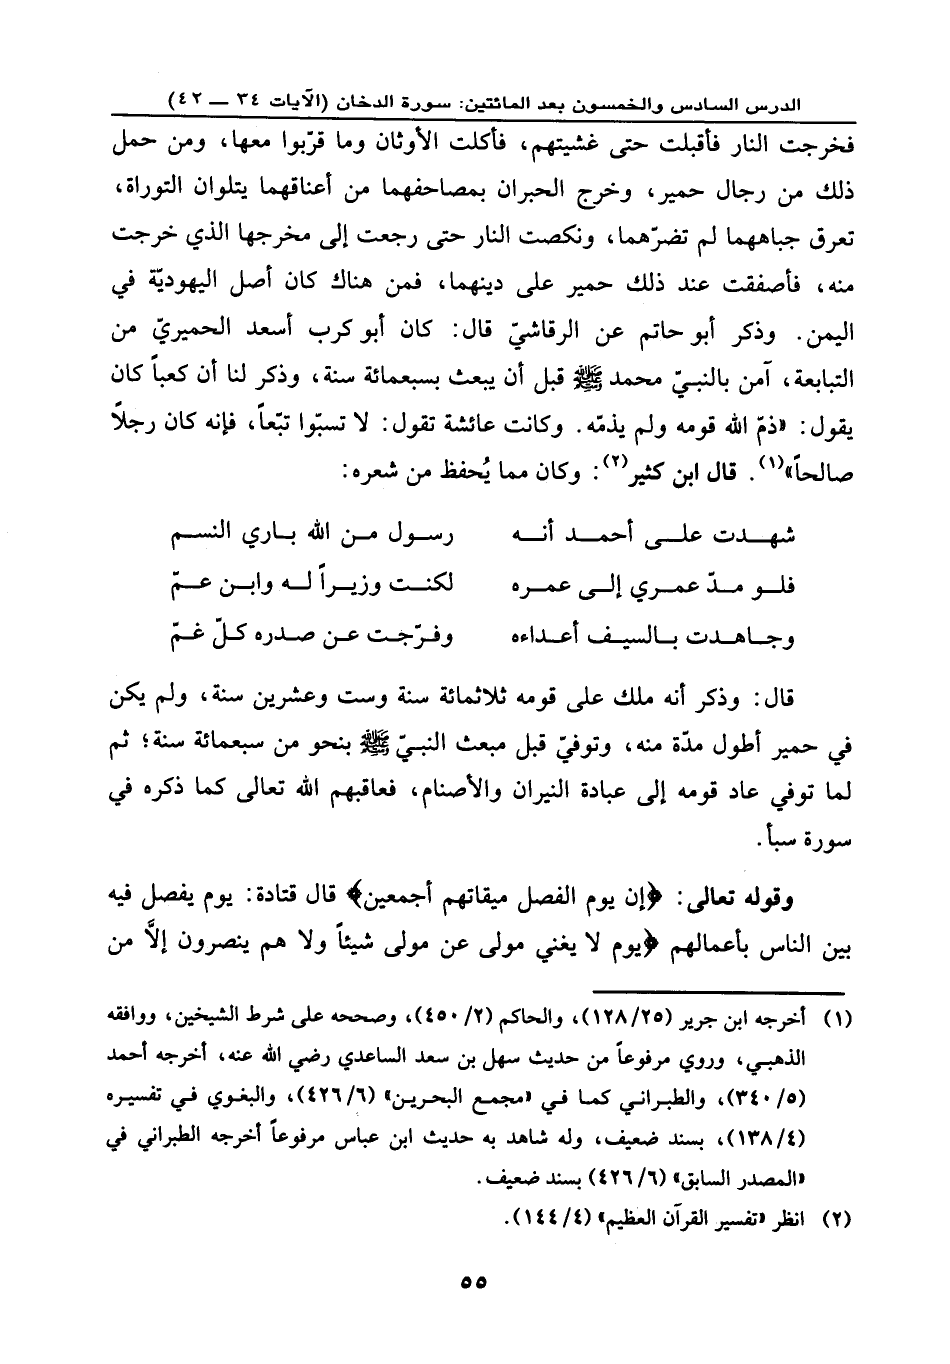 الدرس السادس والخمسون بعد المائتين: سورة الدخان (الآيات ٣٤ — ٤٢)
فخرجت النار فأقبلت حتى غشيتهم، فأكلت الأوثان وما قرّبوا معها، ومن حمل
ذلك من رجال حمير، وخرج الحبران بمصاحفهما من أعناقهما يتلوان التوراة،
تعرق جباههما لم تضرّهما، ونكصت النار حتى رجعت إلى مخرجها الذي خرجت
منه، فأصفقت عند ذلك حمير على دينهما، فمن هناك كان أصل اليهوديّة في
اليمن. وذكر أبو حاتم عن الرقاشيّ قال: كان أبو كرب أسعد الحميريّ من
التبابعة، آمن بالنبيّ محمد ﷺ قبل أن يبعث بسبعمائة سنة، وذكر لنا أن كعباً كان
يقول: «ذمّ الله قومه ولم يذمّه. وكانت عائشة تقول: لا تسبّوا تبّعاً، فإنه كان رجلاً
صالحاً»(١). قال ابن كثير(٢): وكان مما يُحفظ من شعره:
شهدت على أحمد أنه رسول من الله باري النسم
فلو مدّ عمري إلى عمره لكنت وزيراً له وابن عمّ
وجاهدت بالسيف أعداءه وفرّجت عن صدره كلّ غمّ
قال: وذكر أنه ملك على قومه ثلاثمائة سنة وست وعشرين سنة، ولم يكن
في حمير أطول مدّة منه، وتوفيّ قبل مبعث النبيّ ﷺ بنحو من سبعمائة سنة؛ ثم
لما توفي عاد قومه إلى عبادة النيران والأصنام، فعاقبهم الله تعالى كما ذكره في
سورة سبأ.
وقوله تعالى: ﴿إن يوم الفصل ميقاتهم أجمعين﴾ قال قتادة: يوم يفصل فيه
بين الناس بأعمالهم ﴿يوم لا يغني مولى عن مولى شيئاً ولا هم ينصرون إلاَّ من
(١) أخرجه ابن جرير (١٢٨/٢٥)، والحاكم (٤٥٠/٢)، وصححه على شرط الشيخين، ووافقه
الذهبي، وروي مرفوعاً من حديث سهل بن سعد الساعدي رضي الله عنه، أخرجه أحمد
(٣٤٠/٥)، والطبراني كما في «مجمع البحرين» (٤٢٦/٦)، والبغوي في تفسيره
(١٣٨/٤)، بسند ضعيف، وله شاهد به حديث ابن عباس مرفوعاً أخرجه الطبراني في
«المصدر السابق» (٤٢٦/٦) بسند ضعيف.
(٢) انظر «تفسير القرآن العظيم» (١٤٤/٤).
٥٥